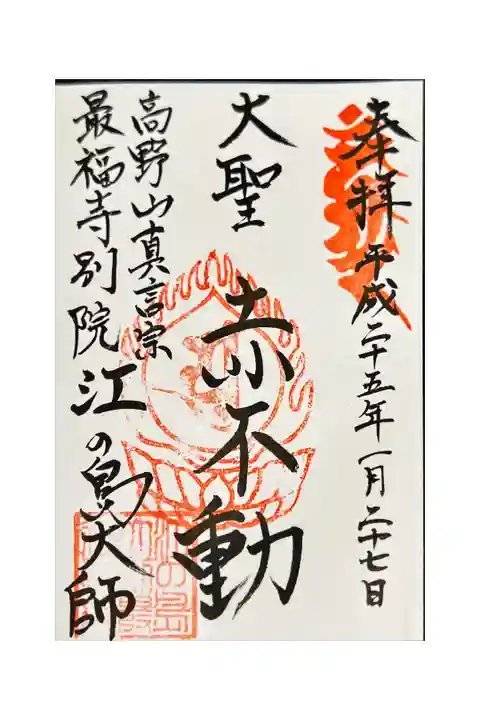 奉拝 平成二十五年一月二十七日
大聖
赤不動
高野山真言宗
最福寺別院江の島大師